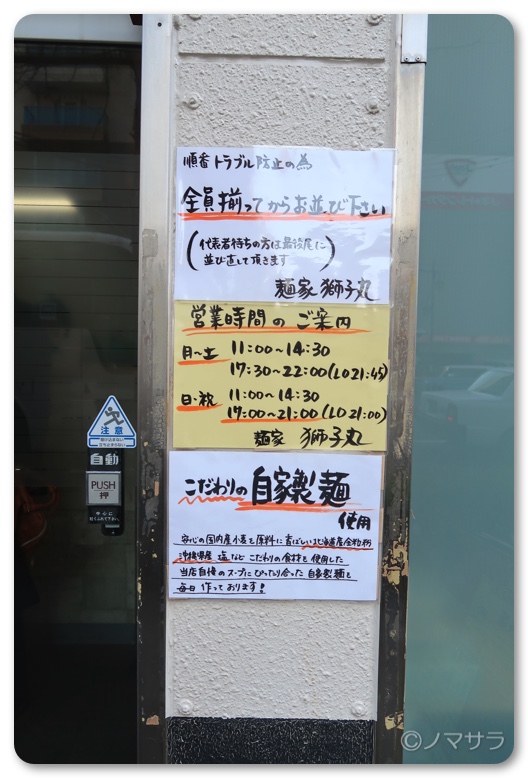 順番トラブル防止の為
全員揃ってからお並び下さい
(代表者待ちの方は最後尾に
並び直して頂きます)
麺家 獅子丸
営業時間のご案内
月〜土 11:00〜14:30
17:30〜22:00(LO21:45)
日・祝 11:00〜14:30
17:00〜21:00(LO21:00)
麺家 獅子丸
こだわりの自家製麺
使用
安心の国内産小麦を原料に香ばしい北海道産全粒粉
沖縄県産 塩など こだわりの食材を使用した
当店自慢のスープにぴったり合った自家製麺を
毎日 作っております!
注意
自動
PUSH
押
©ノマサラ